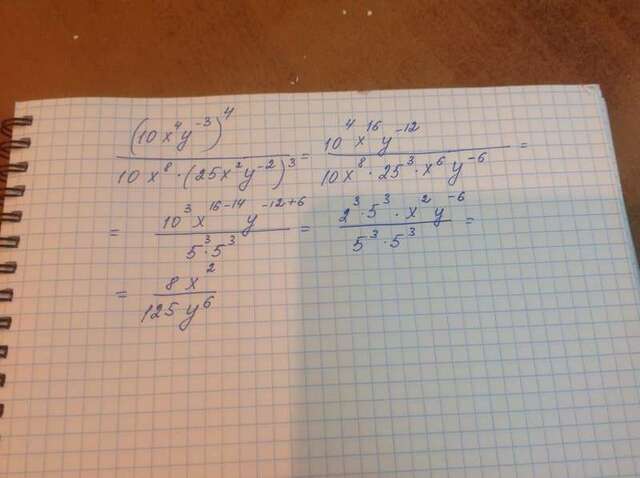 (10x⁴y⁻³)⁴ / 10x⁸·(25x²y⁻²)³ = 10⁴x¹⁶y⁻¹² / 10x⁸·25³·x⁶y⁻⁶ =
= 10³x¹⁶⁻¹⁴y⁻¹²⁺⁶ / 5³·5³ = 2³·5³·x²y⁻⁶ / 5³·5³ =
= 8x² / 125y⁶